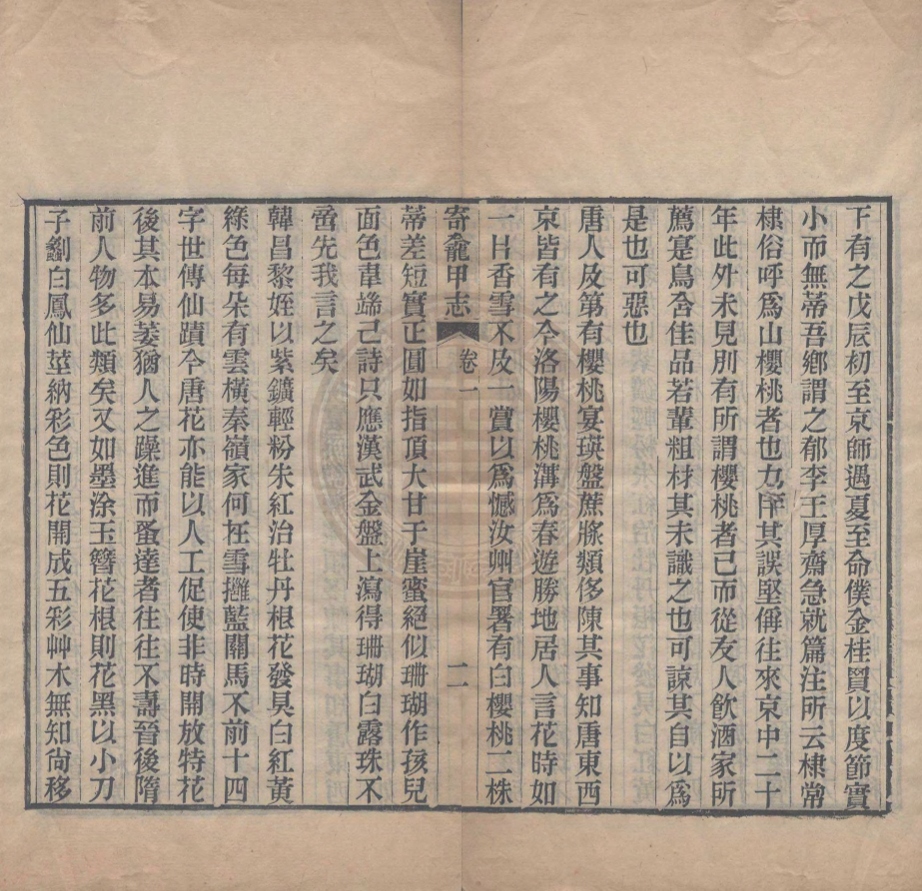 下有之戊辰初至京師遇夏至命僕金桂買以度節實
小而無蒂吾鄉謂之郁李王厚齋急就篇注所云棣常
棣俗呼爲山櫻桃者也力評其誤堅偁往來京中二十
年此外未見別有所謂櫻桃者已而從友人飲酒家所
薦寔鳥含佳品若輩粗材其未識之也可諒其自以爲
是也可惡也
唐人及第有櫻桃宴瑛盤蔗漿類侈陳其事知唐東西
京皆有之今洛陽櫻桃溝爲春遊勝地居人言花時如
一日香雪不及一賞以爲憾汝州官署有白櫻桃二株
寄龕甲志 卷一 二
蒂差短實正圓如指頂大甘于崖蜜絕似珊瑚作孩兒
面色韋端己詩只應漢武金盤上瀉得珊瑚白露珠不
啻先我言之矣
韓昌黎姪以紫鑛輕粉朱紅治牡丹根花發見白紅黃
綠色每朵有雲橫秦嶺家何在雪擁藍關馬不前十四
字世傳仙蹟今唐花亦能以人工促使非時開放特花
後其本易萎猶人之躁進而蚤達者往往不壽晉後隋
前人物多此類矣又如墨涂玉簪花根則花黑以小刀
子劙白鳳仙莖納彩色則花開成五彩艸木無知尙移